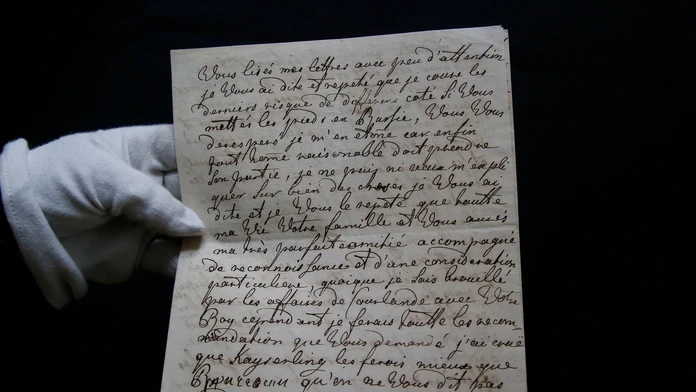 Vous lisés mes lettres avec peu d'attention
je Vous ai dite et repeté que je coure les
derniers risque de different coté Si Vous
mettés les pieds en Russie, Vous Vous
desespere je m'en etone car enfin
tout home raisonable doit prendre
Son partie, je ne puis ni veux m'expli
quer sur bien des choses je Vous ai
dite et je Vous le repete que toutte
ma Vie Votre famille et Vous aurés
ma très parfait amitié accompagné
de reconnoissance et d'une consideration
particuliere, quoique je sois brouillé
par les affaires de Courlande avec Votre
Roy cependant je ferais toutte les recom
mandation que Vous demandé j'ai
que Kayserling les ferois mieux que
qu'on ne Vous dit pas